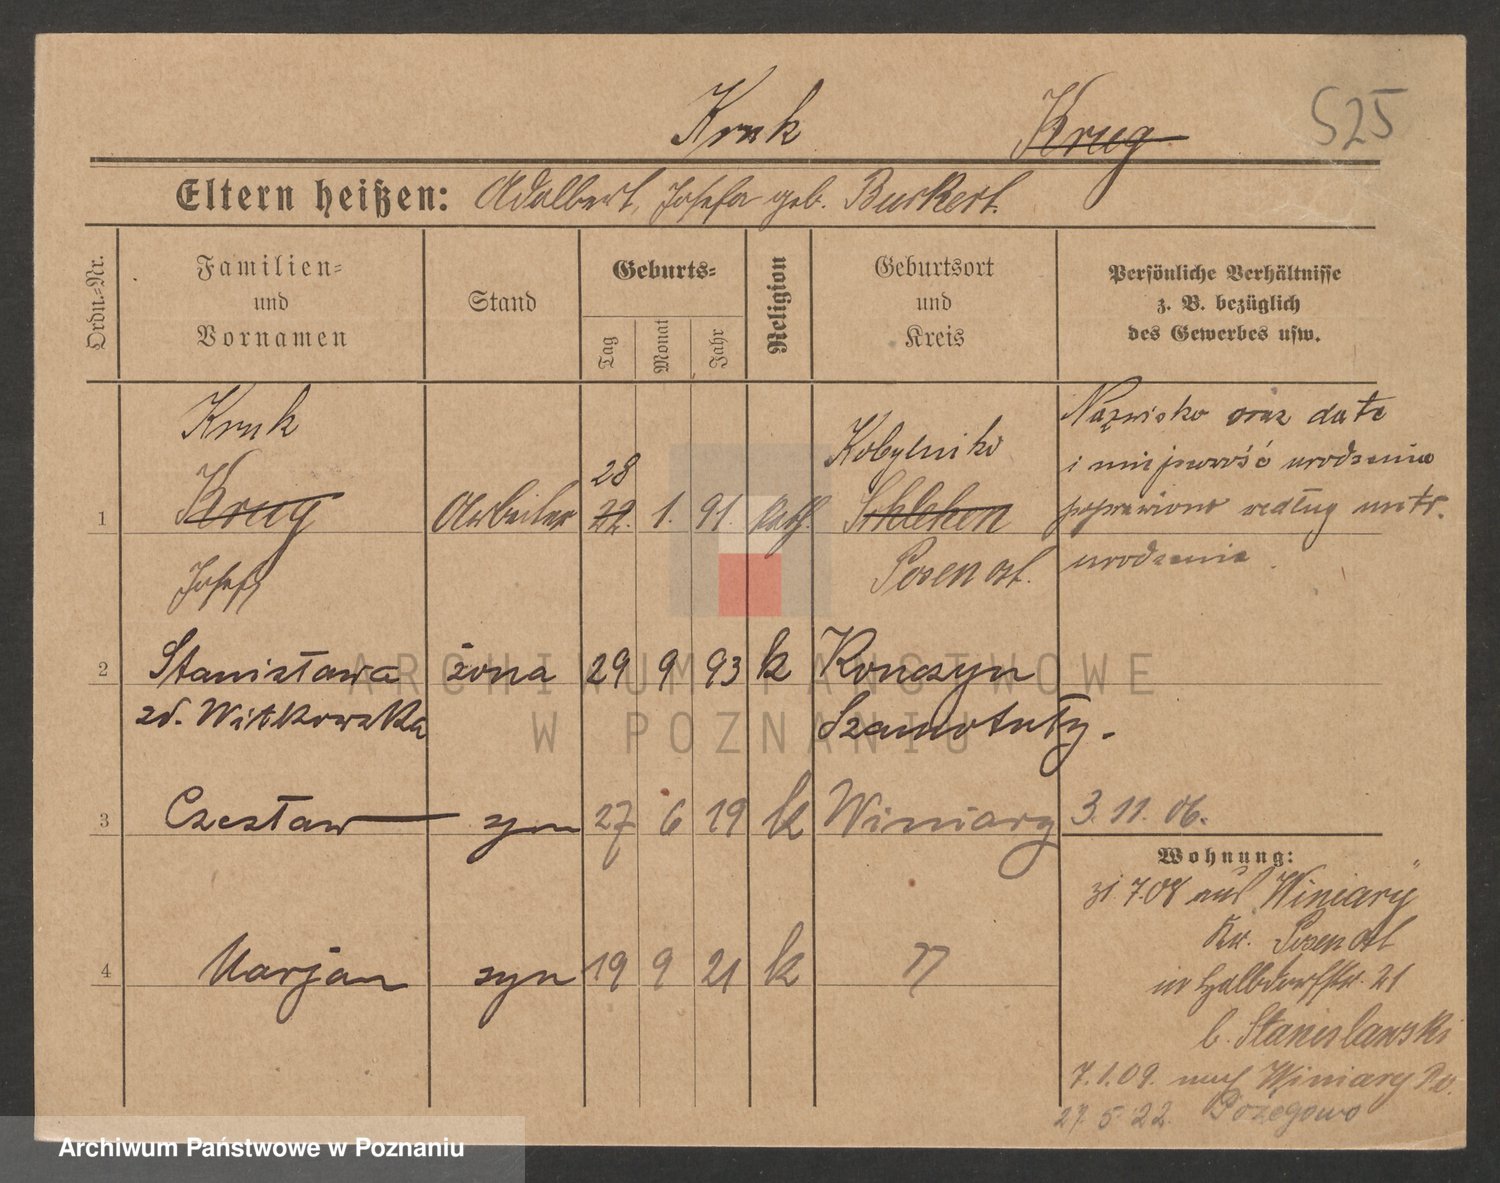 Kruk Krug 525
Eltern heißen: Adalbert, Josefa geb. Burkert.
Ordn.-Nr.
Familien-
und
Vornamen
Stand
Geburts-
Tag
Monat
Jahr
Religion
Geburtsort
und
Kreis
Persönliche Verhältnisse
z. B. bezüglich
des Gewerbes usw.
1
Kruk
Krug
Josef
Arbeiter
28
22. 1. 91. kath.
Kobylniki
Schlehen
Posen ost.
Nazwisko oraz data
i miejscowość urodzenia
poprawiono według metr.
urodzenia.
2 Stanisława żona 29 9 93 k Konczyn
zd. Witkowska Szamotuły.
3 Czesław syn 27 6 19 k Winiary 3. 11. 06.
Wohnung:
31.7.08 aus "Winiary"
Kr. Posen Ost
in Halbdorfstr. 21
b. Stanislawski
4 Marjan syn 19 9 21 k "
7.1.09. nach Winiary Po.
27.5.22. Pożegowo
ARCHIWUM PAŃSTWOWE
W POZNANIU
Archiwum Państwowe w Poznaniu